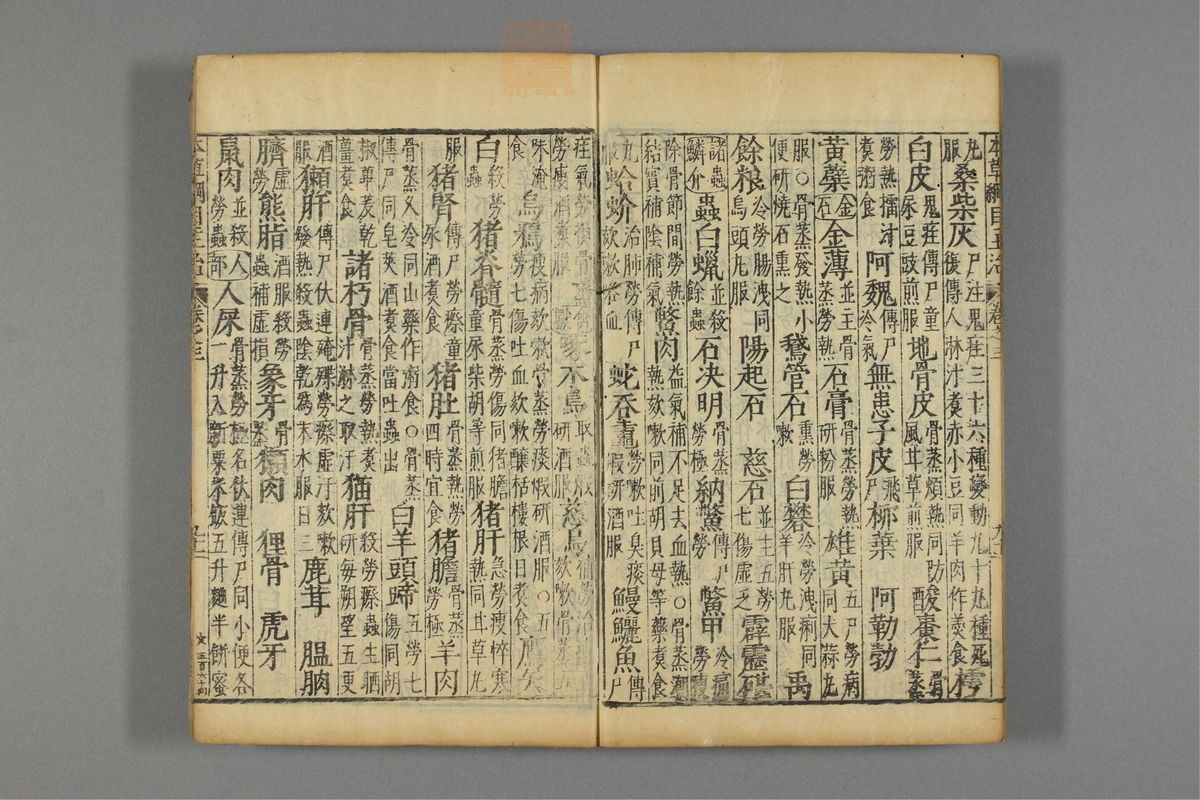 本草綱目主治 卷之三
丸服 桑柴灰 尸注鬼疰三十六種變動九十九種死復傳人淋汁煮赤小豆同羊肉作羹食 樗
白皮 鬼疰傳尸童尿豆豉煎服 地骨皮 骨蒸煩熱同防風甘草煎服 酸棗仁 骨蒸
勞熱擂汁煮粥食 阿魏 傳尸冷氣 無患子皮 飛尸 栁葉 阿勒勃
黃蘗 金石 金薄 並主骨蒸勞熱 石膏 骨蒸勞熱研粉服 雄黃 五尸勞病同大蒜丸
服○骨蒸發熱小便研燒石熏之 鵝管石 熏勞嗽 白礬 冷勞洩痢同羊肝丸服 禹
餘粮 冷勞腸洩同烏頭丸服 陽起石 慈石 並主五勞七傷虛乏 霹靂碪
諸蟲 鱗介 蟲白蠟 並殺餘蟲 石决明 骨蒸勞極 納鱉 傳尸勞 鱉甲 冷痛勞瘦
除骨節間勞熱結實補陰補氣 鱉肉 益氣補不足去血熱○骨蒸潮熱欬嗽同前胡貝母等藥煮食
丸服 蛤蚧 治肺勞傳尸欬嗽咯血 蛇吞鼃 勞嗽吐臭痰煆研酒服 鰻鱺魚 傳尸
疰氣勞損骨蒸勞瘦酒煮服 啄木鳥 取蟲研酒服 慈烏 補勞治瘦欬嗽骨蒸五
味淹食 烏鴉 瘦病欬嗽骨蒸勞瘵煆研酒服○五勞七傷吐血欬嗽釀栝樓根日煮食 鷹矢
白 殺勞蟲 猪脊髓 骨蒸勞傷同猪膽童尿柴胡等煎服 猪肝 急勞瘦悴寒熱同甘草丸
服 猪腎 傳尸勞瘵童尿酒煮食 猪肚 骨蒸熱勞四時宜食 猪膽 骨蒸勞極 羊肉
骨蒸久冷同山藥作粥食○骨蒸傳尸同皂莢酒煮食當吐蟲出 白羊頭蹄 五勞七傷同胡
椒蓽茇乾薑煮食 諸朽骨 骨蒸勞熱煮汁淋之取汗 猫肝 殺勞瘵蟲生晒研每朔望五更
酒服 獺肝 傳尸伏連殗殜勞瘵虛汗欬嗽發熱殺蟲陰乾爲末水服日三 鹿茸 腽肭
臍 虛勞 熊脂 酒服殺勞蟲補虛損 象牙 骨蒸 獺肉 貍骨 虎牙
鼠肉 並殺勞蟲 人部 人屎 骨蒸勞極名伏連傳尸同小便各一升入新粟米飯五升麵半餅蜜
本草綱目主治 卷之三